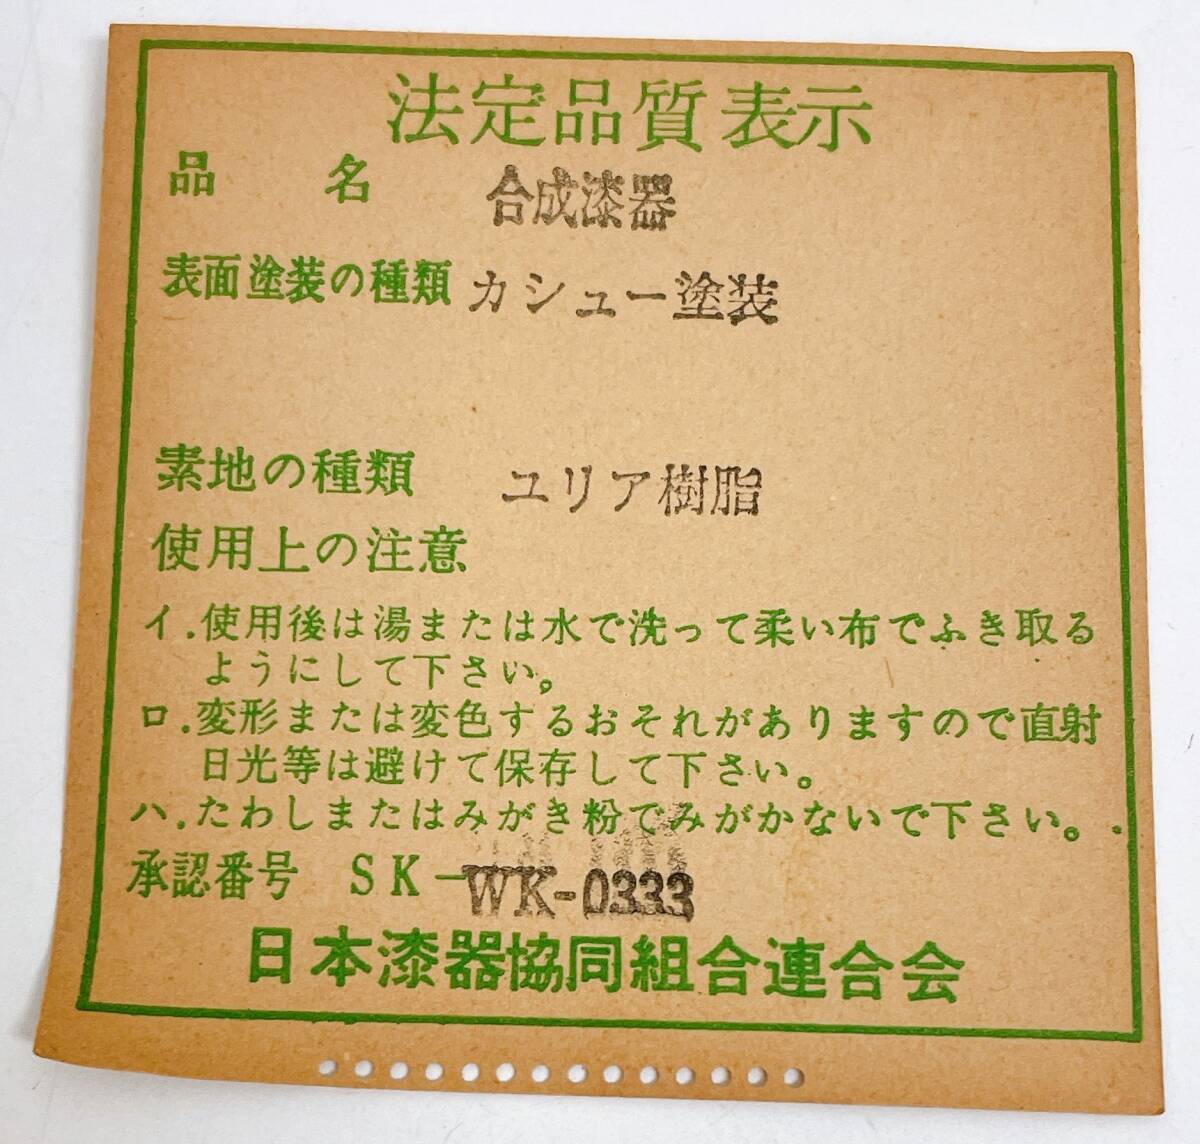 法定品質表示
品名 合成漆器
表面塗装の種類 カシュー塗装
素地の種類 ユリア樹脂
使用上の注意
イ.使用後は湯または水で洗って柔い布でふき取る
ようにして下さい。
ロ.変形または変色するおそれがありますので直射
日光等は避けて保存して下さい。
ハ.たわしまたはみがき粉でみがかないで下さい。
承認番号 SK-WK-0333
日本漆器協同組合連合会